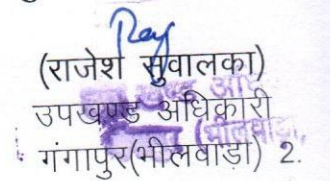 (राजेश सुवालका)
उपखण्ड अधिकारी
गंगापुर(भीलवाडा) 2.